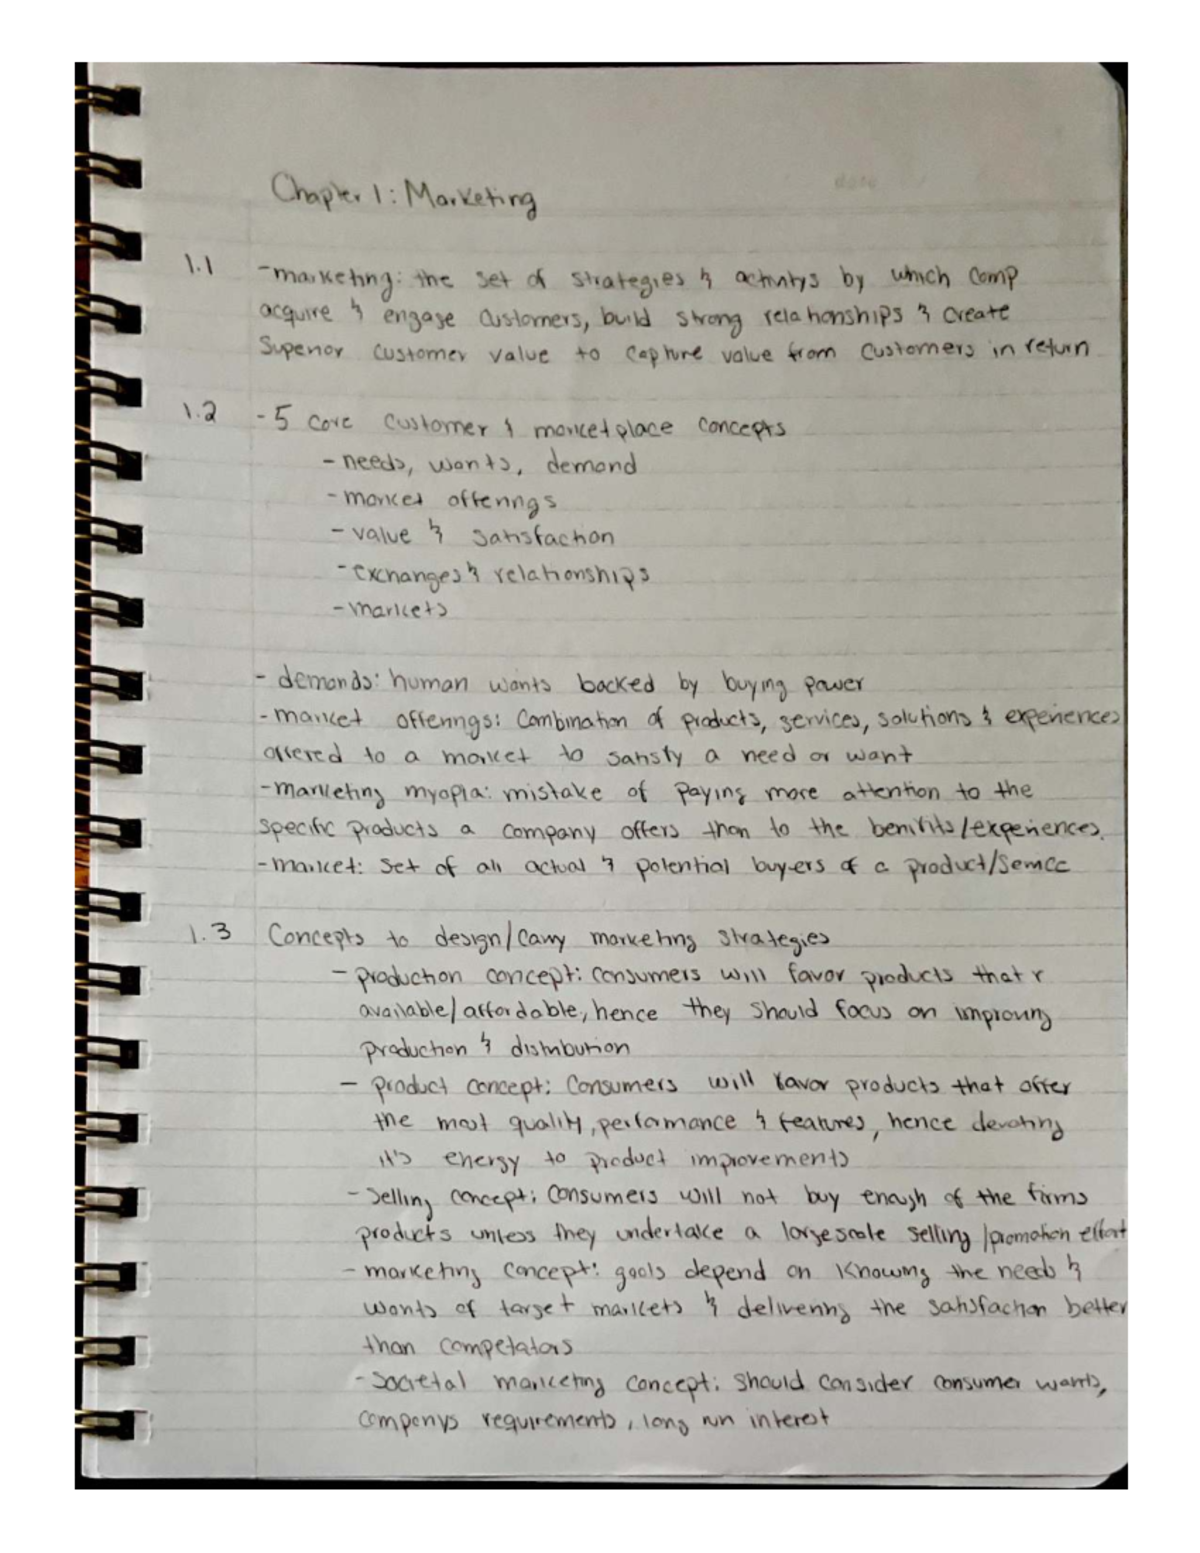 date
Chapter 1: Marketing
1.1 -marketing: the set of strategies & activitys by which comp
acquire & engage customers, build strong relationships & create
Superior customer value to capture value from customers in return
1.2 -5 core customer & marketplace concepts
-needs, wants, demand
-market offerings
-value & satisfaction
-exchanges & relationships
-markets
- demands: human wants backed by buying power
-market offerings: combination of products, services, solutions & experiences
offered to a market to satisfy a need or want
-marketing myopia: mistake of paying more attention to the
specific products a company offers than to the benifits/experiences.
-market: set of all actual & potential buyers of a product/service
1.3 Concepts to design/carry marketing strategies
- production concept: consumers will favor products that r
available/affordable, hence they should focus on improving
production & distribution
- product concept: consumers will favor products that offer
the most quality, performance & features, hence devoting
it's energy to product improvements
-selling concept: consumers will not buy enough of the firms
products unless they undertake a largescale selling/promotion effort
- marketing concept: goals depend on knowing the needs &
wants of target markets & delivering the satisfaction better
than competators
-societal marketing concept: should consider consumer wants,
companys requirements, long run interest